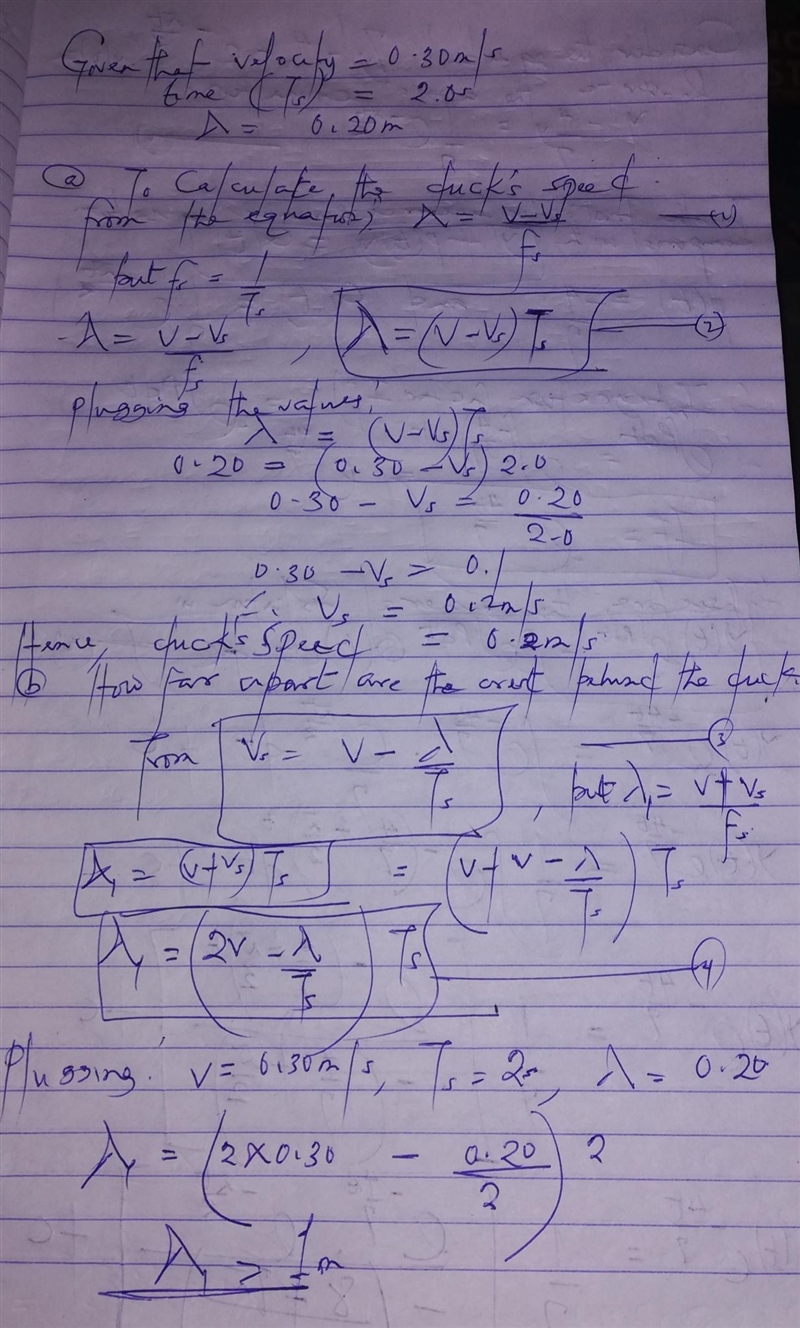 Given that velocity = 0.30m/s
time (Ts) = 2.0s
λ = 0.20m
(a) To Calculate the duck's speed.
from the equation, λ = (v-Vs)/fs —(1)
but fs = 1/Ts
λ = (V-Vs)/fs , λ = (V-Vs)Ts —(2)
plugging the values,
λ = (V-Vs)Ts
0.20 = (0.30 - Vs) 2.0
0.30 - Vs = 0.20/2.0
0.30 - Vs = 0.1
∴ Vs = 0.2m/s
Hence, duck's Speed = 0.2m/s.
(b) How far apart are the crest behind the duck.
from Vs = V - λ/Ts —(3)
, but λ₁ = (V+Vs)/fs
λ₁ = (V+Vs)Ts = (V+V-λ/Ts) Ts
λ₁ = (2V - λ/Ts) Ts —(4)
Plugging: V = 0.30m/s, Ts = 2s, λ = 0.20
λ₁ = (2×0.30 - 0.20/2) 2
λ₁ = 1m